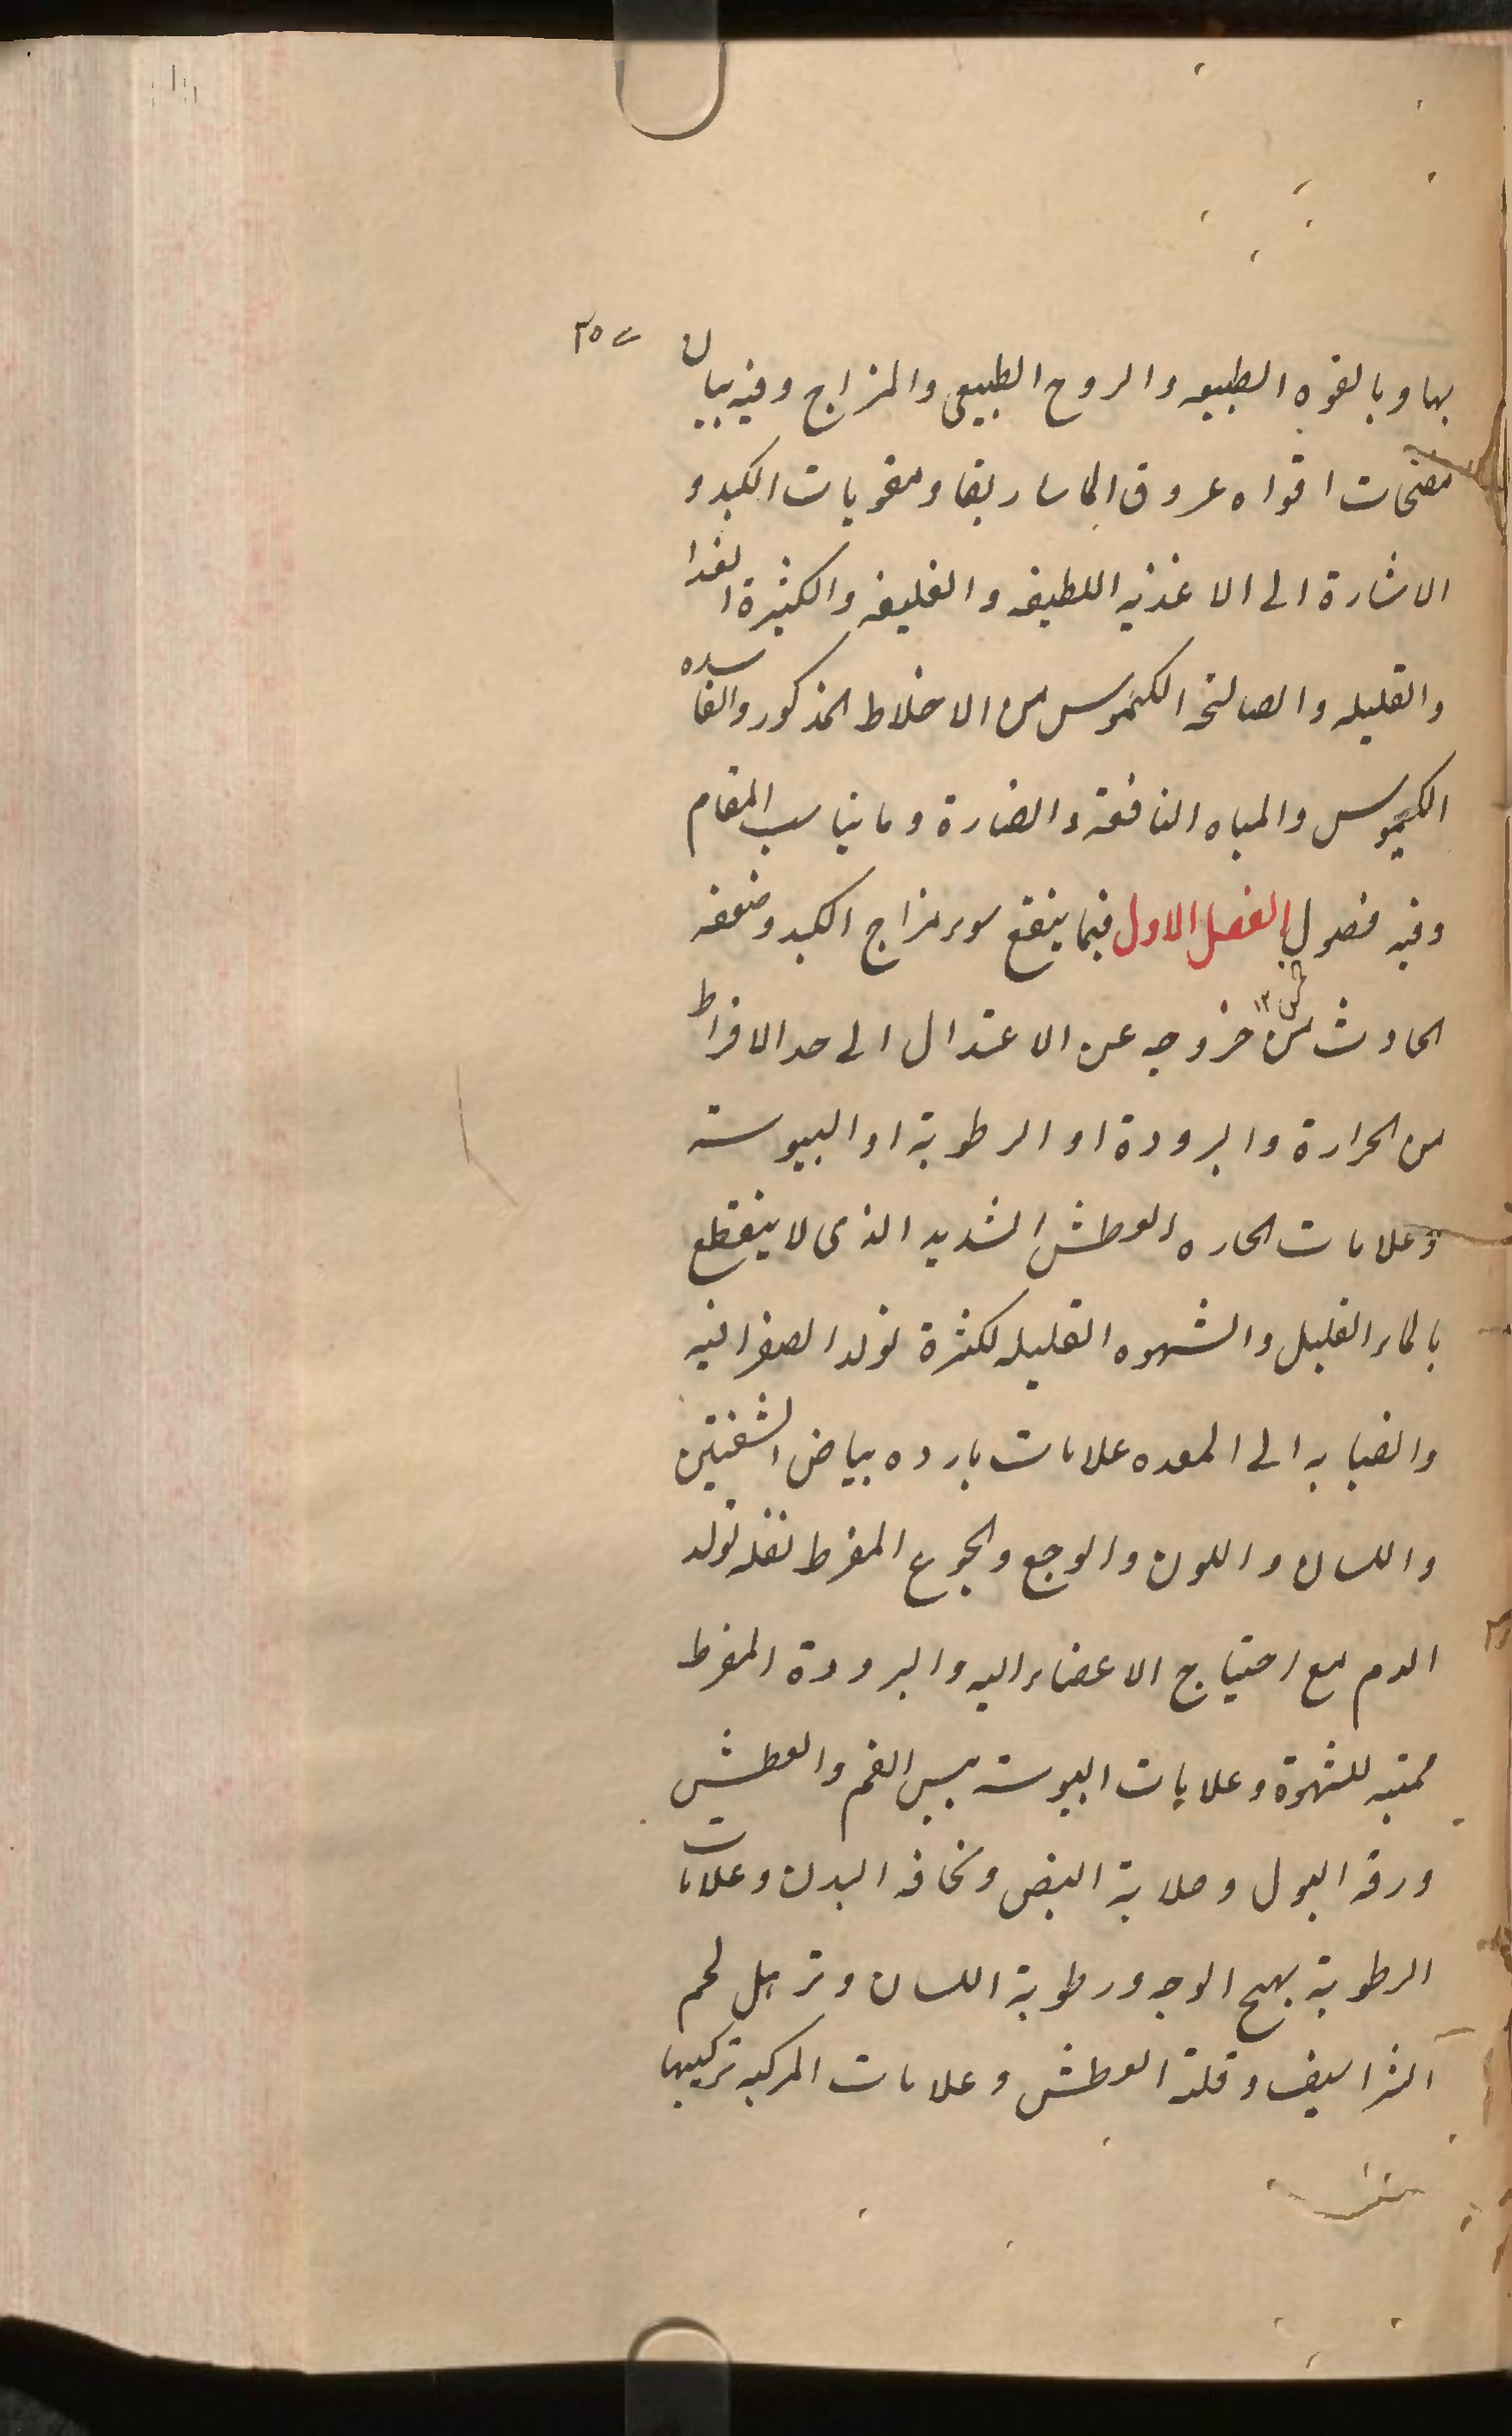 بها و بالقوه الطبيعه والروح الطبيعى والمزاج وفيه بيان
مفتحات افواه عروق الماساريقا ومقويات الكبد و
الاشارة الى الاغذيه اللطيفه والغليظه والكثيرة الغذا
والقليله والصالحه الكيموس من الاخلاط المذكور والفاسده
الكيموس والمياه النافعة والضارة وما يناسب المقام
وفيه فصول الفصل الاول فيما ينفع سوء مزاج الكبد وضعفه
الحادث من خروجه عن الاعتدال الى حد الافراط
من الحرارة والبرودة او الرطوبة او اليبوسته
وعلامات الحاره العطش الشديد الذى لا ينقطع
بالماء القليل والشهوه القليله لكثرة تولد الصفرا فيه
وانصبابه الى المعده علامات بارده بياض الشفتين
واللسان واللون والوجع والجوع المفرط لقله تولد
الدم مع احتياج الاعضاء اليه والبرودة المفرط
مميته للشهوة وعلامات اليبوسته يبس الفم والعطش
ورقه البول وصلابة النبض ونحافه البدن وعلامات
الرطوبة تهيج الوجه ورطوبة اللسان وترهل لحم
الشراسيف وقلة العطش وعلامات المركبه تركيبها